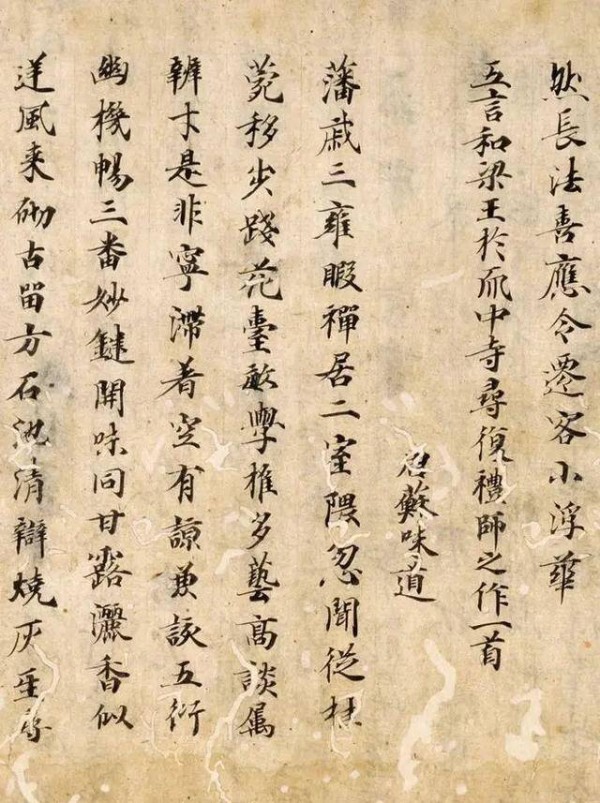 然長法善應令遷客小浮華
五言和梁王於𠀑中寺尋復禮師之作一首
𢘑蘇味道
藩戚三雍暇禪居二室隈忽聞從桂
菀移步踐花臺敏學推多藝高談屬
辯才是非寧滯著空有諒兼該五衍
幽機暢三番妙鍵開味同甘露灑香似
逆風来砌古留方石池清辯燒灰重尋